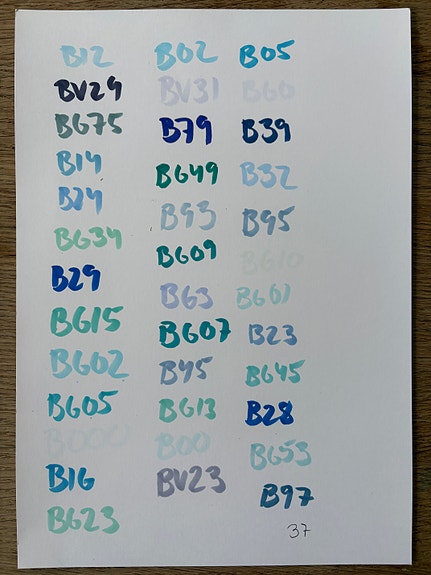 B12 B02 B05
BV29 BV31 B60
BG75 B79 B39
B14 BG49 B32
B24 B93 B95
BG34 BG09 BG10
B29 B63 BG01
BG15 BG07 B23
BG02 B45 BG45
BG05 BG13 B28
B000 B00 BG53
B16 BV23 B97
BG23
37